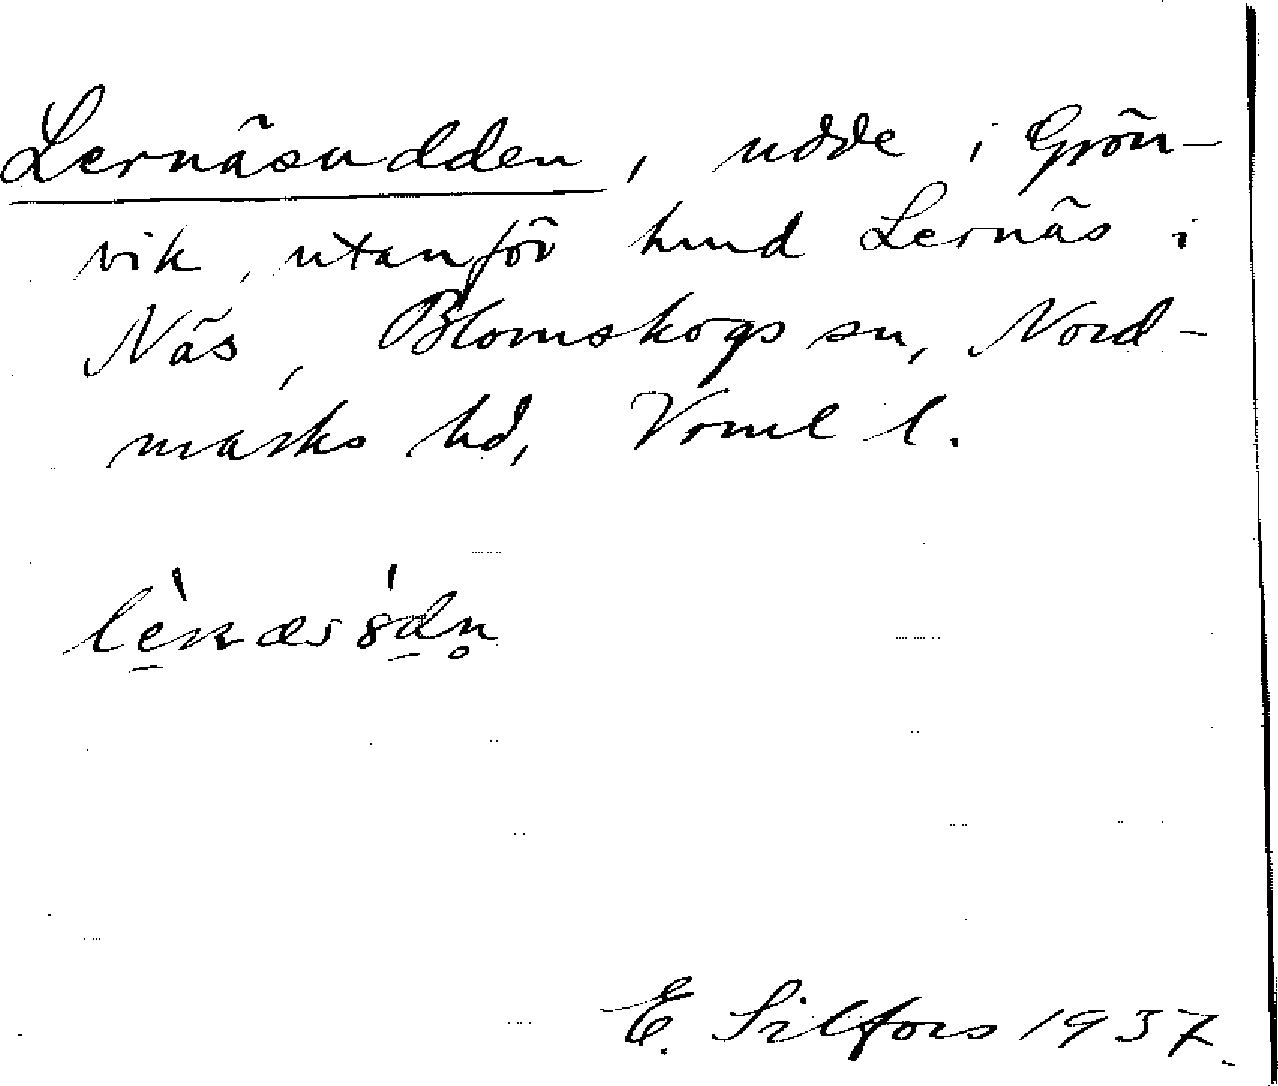 Lernäsudden, udde i Grön-
vik, utanför hmd Lernäs i
Näs, Blomskogs sn, Nord-
marks hd, Vrml l.
lènæs8́dn̥
E. Silfors 1937.